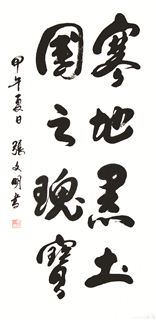 寒地黑土
国之瑰寶
甲午夏日
張文明書